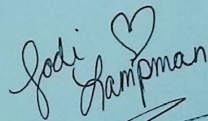 Jodi
Kampman